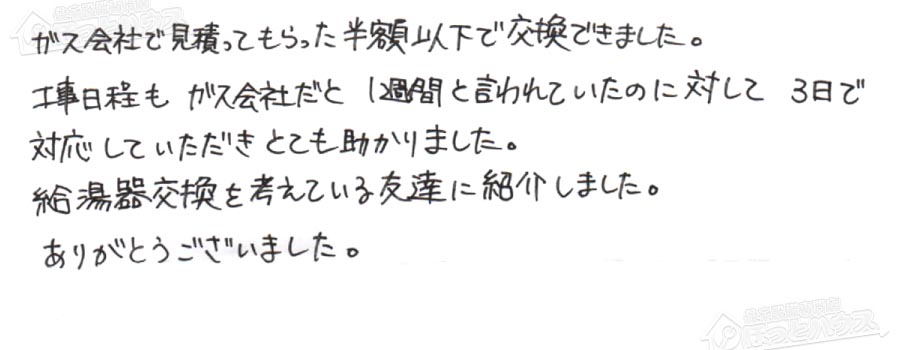 ガス会社で見積ってもらった半額以下で交換できました。
工事日程も ガス会社だと 1週間と言われていたのに対して 3日で
対応していただきとても助かりました。
給湯器交換を考えている友達に紹介しました。
ありがとうございました。
ほっとハウス